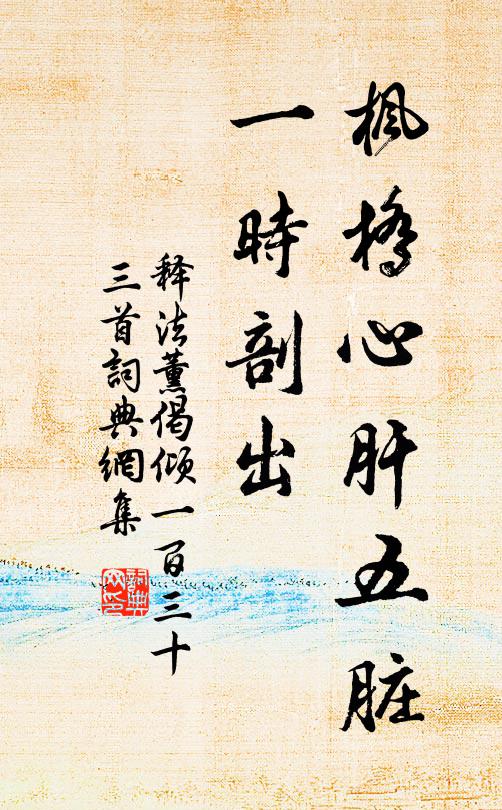 枫桥心肝五脏
一時剖出
释法薰偈倾一百三十
三首詞典網集